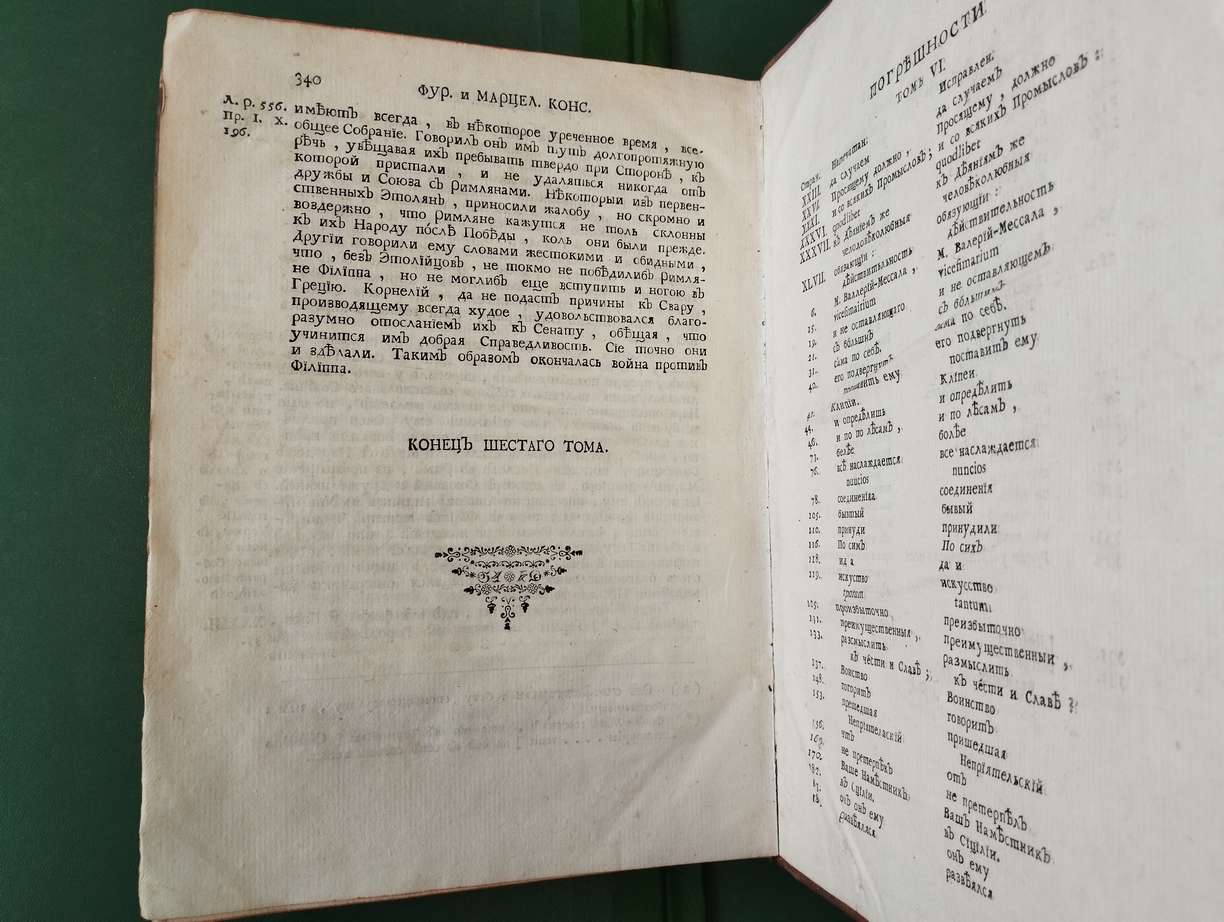 340
ФУР. и МАРЦЕЛ. КОНС.
Л. р. 556.
Пр. I. X.
196.
имѣютъ всегда, въ нѣкоторое уреченное время, все-
общее Собранїе. Говорилъ онъ имъ тутъ долгопротяжную
рѣчь, увѣщавая ихъ пребывать твердо при Сторонѣ, къ
которой пристали, и не удаляться никогда отъ
дружбы и Союза съ Римлянами. Нѣкоторыи изъ первен-
ственныхъ Этолянъ, приносили жалобу, но скромно и
воздержно, что Римляне кажутся не толь склонны
къ ихъ Народу по́слѣ Побѣды, коль они были прежде.
Другїи говорили ему словами жестокими и обидными,
что, безъ Этолїйцовъ, не токмо не побѣдилибъ Римля-
не Фїлїппа, но не моглибъ еще вступить и ногою въ
Грецїю. Корнелїй, да не подастъ причины къ Свару,
производящему всегда худое, удовольствовался благо-
разумно отосланїемъ ихъ къ Сенату, обѣщая, что
учинится имъ добрая Справедливость. Сїе точно они
и здѣлали. Такимъ образомъ окончалась война противъ
Фїлїппа.
КОНЕЦЪ ШЕСТАГО ТОМА.
ПОГРѢШНОСТИ
ТОМЪ VI.
Стран. Напечатан: Исправлен:
XXIII. да случаем да случаемъ
XXVI. Просящему должно, Просящему, должно
XXXI. и со всякихъ Промысловъ; и со всякихъ Промысловъ:
XXXVI. quodliber quodlibet
XXXVII. къ дѣянїем же къ дѣянїямъ же
челоѣколюбныя человѣколюбныя
XLVII. обязающїи: обязующїи:
дѣйствительность дѣйствительность
6. М. Валлерїй-Мессала, М. Валерїй-Мессала,
vicesimarium
15. и не оставляющаго и не оставляющемъ
19. съ бо́льшиъ съ бо́льшимъ
21. сама по себѣ. сама по себѣ.
31. его подвергнуть его подвергнуть
40. поставить ему поставитъ ему
41. Клипїи. Клїпеи.
44. и опредѣлишь и опредѣлить
46. и по по лѣсамъ, и по лѣсамъ,
71. белѣе болѣе
76. всѣ наслаждается все наслаждается
nuncios
78. соединенїка соединенїя
105. бывтый бывый
110. принуди принудили
116. По сикъ По сихъ
118. ид а да и
119. искуство искусство
tantum
125. произбыточно преизбыточно
131. преикущественныя, преимущественный,
133. разсмыслить размыслить
137. къ че́сти и Славѣ; къ че́сти и Славѣ?
148. Воиство Воинство
153. тогорить говоритъ
прешедшая пришедшая
156. Непрїятеласкїй Непрїятельскїй
169. чтъ отъ
170. не претерпѣк не претерпѣлъ
Ваше Намѣстникъ Вашъ Намѣстникъ
въ Сцїлїи. въ Сїцїлїи.
онъ ему
развѣялся